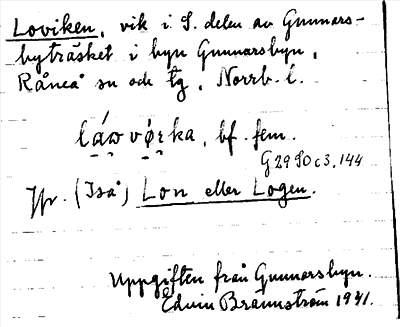 Loviken, vik i S. delen av Gunnars-
byträsket i byn Gunnarsbyn,
Råneå sn och tg, Norrb. l.
bf. fem.
G 29 SO c 3, 144
Jfr. (Iså) Lon eller Logen.
Uppgiften från Gunnarsbyn.
Edvin Brännström 1941.